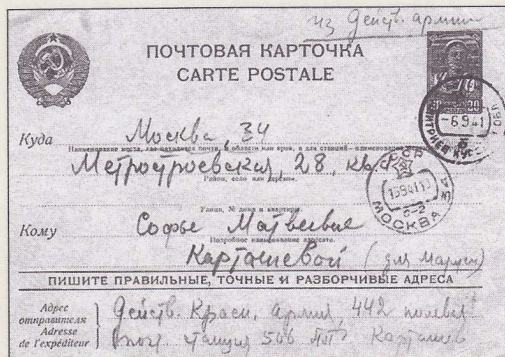 из действ. армии
ПОЧТОВАЯ КАРТОЧКА
CARTE POSTALE
-6.9.41
Куда Москва, 34
Наименование места, где находится почта, и области или края, а для станций - наименование
Метростроевская, 28, кв.
Район, село или деревня.
СССР
15.9.41
МОСКВА
Улица, № дома и квартиры.
Кому Софье Матвеевне
Подробное наименование адресата.
Карташевой (для Маруси)
ПИШИТЕ ПРАВИЛЬНЫЕ, ТОЧНЫЕ И РАЗБОРЧИВЫЕ АДРЕСА
Адрес отправителя
Adresse de l'expéditeur
Действ. Красн. Армия, 442 полевая
почт. станция 506 Карташев